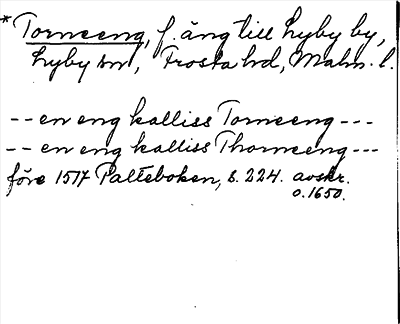 * Torneeng, f. äng till Hyby by,
Hyby sn, Frosta hd, Malm. l.
-- en eng kalliss Torneeng ---
-- en eng kalliss Thorneeng ---
före 1517 Palteboken, s. 224. avskr.
o. 1650.